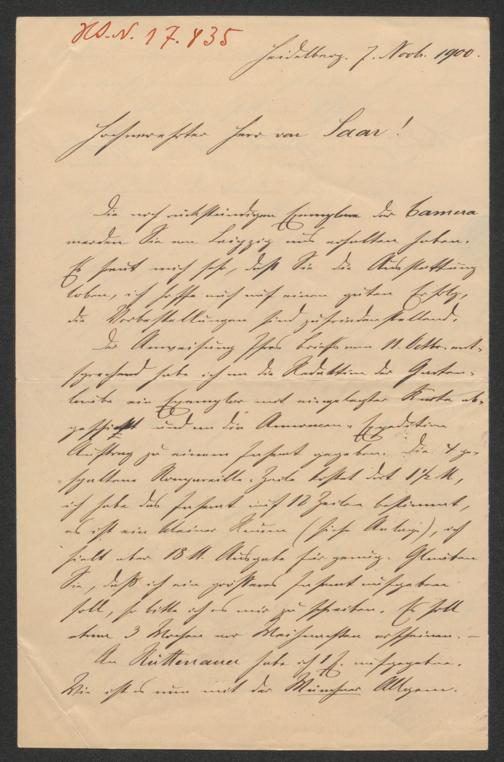 HS.N. 17.435
Heidelberg. 7. Novb. 1900.
Hochverehrter Herr von Saar!
Die noch rückständigen Exemplare der Camera
werden Sie von Leipzig aus erhalten haben.
Es freut mich sehr, daß Sie die Ausstattung
loben, ich hoffe auch auf einen guten Erfolg,
die Vorbestellungen sind zufriedenstellend.
Der Anweisung Ihres Briefes vom 11. Octbr. ent-
sprechend habe ich an die Redaktion der Garten-
laube ein Exemplar mit eingelegter Karte ab-
geschickt und an die Annoncen-Expedition
Auftrag zu einem Inserat gegeben. Die 4 ge-
spaltene Nonpareille-Zeile kostet dort 1½ M,
ich habe das Inserat auf 12 Zeilen bestimmt,
es ist ein kleiner Raum (siehe Anlage), ich
hielt aber 18 M. Ausgabe für genug. Glauben
Sie, daß ich ein größeres Inserat aufgeben
soll, so bitte ich es mir zu schreiben. Es soll
etwa 3 Wochen vor Weihnachten erscheinen. —
An Rüttenauer habe ich 1 Ex. aufgegeben.
Wie ist es nun mit der Münchner Allgem.